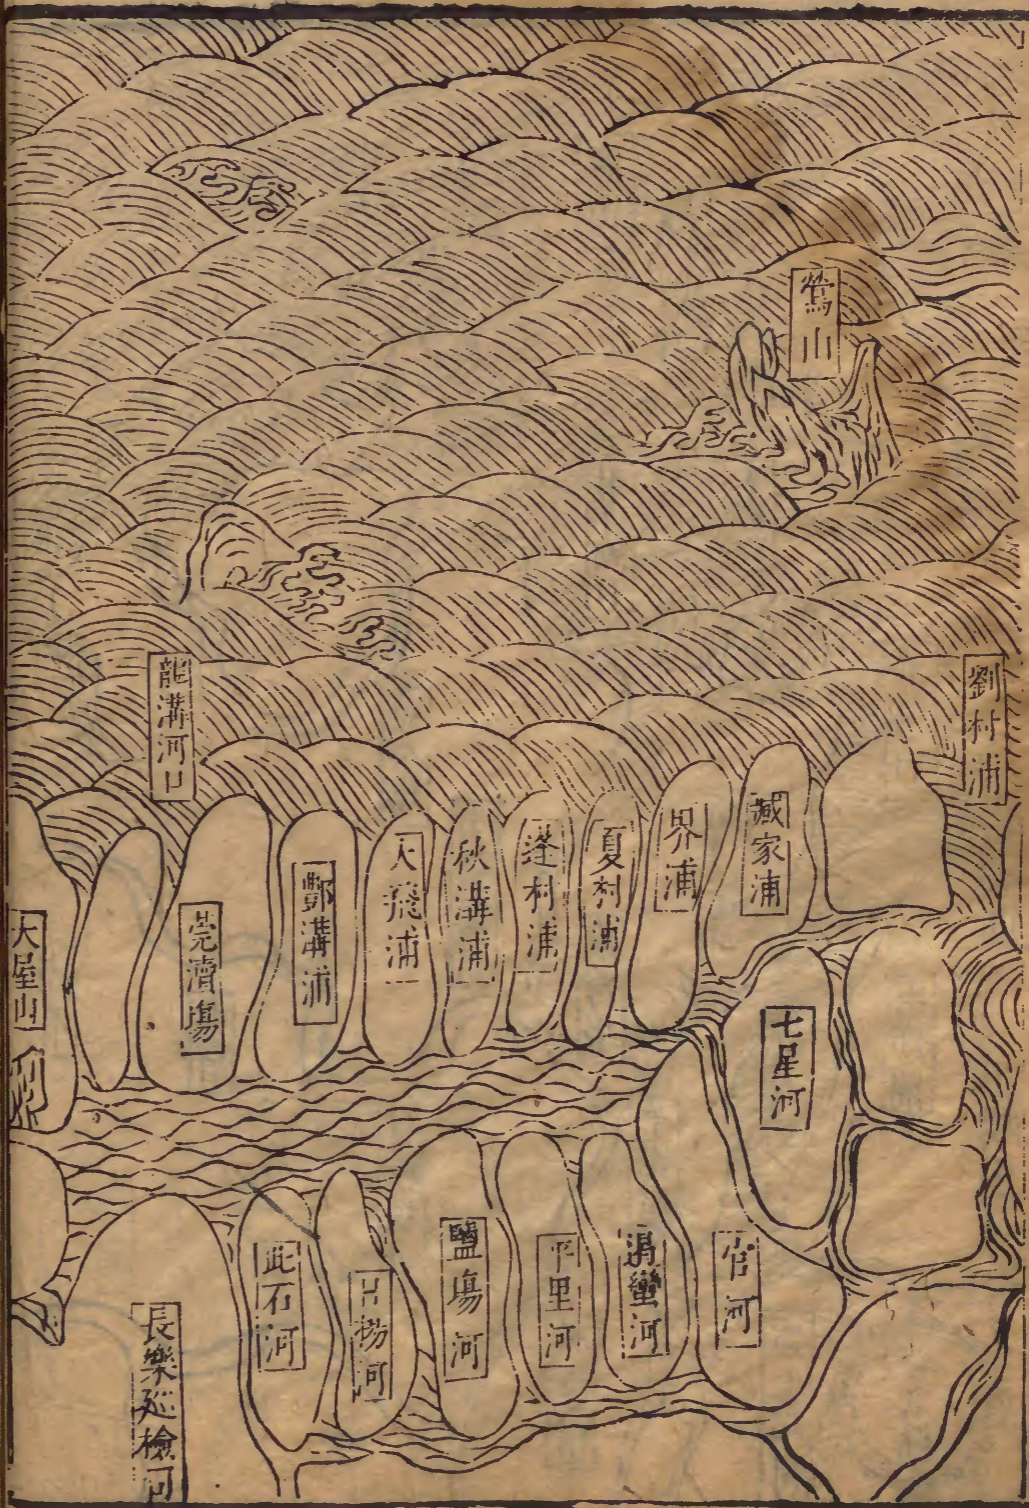 鶯山
劉村浦
龍溝河口
臧家浦
界浦
夏村浦
蓬村浦
秋溝浦
大飛浦
鄷溝浦
莞瀆塲
大屋山
七星河
官河
渦蠻河
平里河
鹽塲河
楊河
此石河
長樂廵檢司